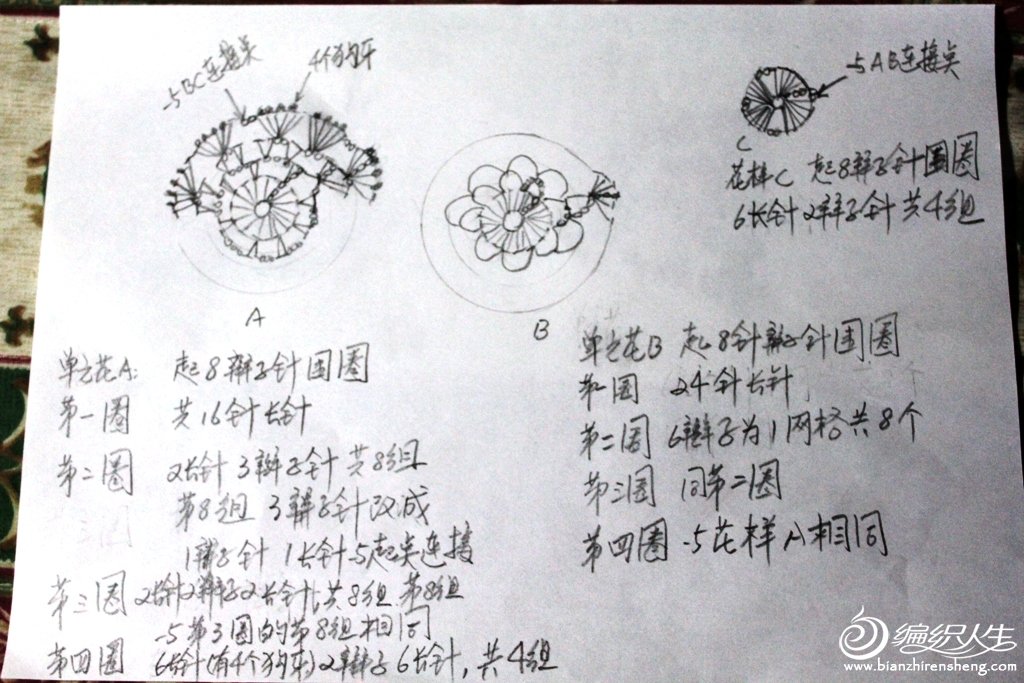 与BC连接点
4个狗牙
与AB连接点
C
花样C 起8辫子针围圈
6长针2辫子针共4组
A
B
单元花A: 起8辫子针围圈
第一圈 共16针长针
第二圈 2长针3辫子针共8组
第8组3辫子针改成
1辫子针1长针与起点连接
第三圈2长针2辫子2长针,共8组第8组
与第3圈的第8组相同
第四圈 6长针(有4个狗牙)2辫子6长针,共4组
单元花B 起8针辫子针围圈
第一圈 24针长针
第二圈 6辫子为1网格共8个
第三圈 同第二圈
第四圈 与花样A相同
编织人生
www.bianzhirensheng.com